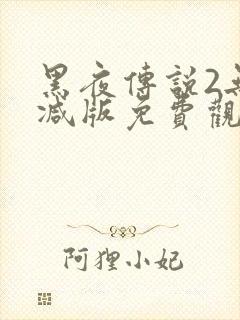 黑夜傳說2無
減版免費觀
阿狸小妃